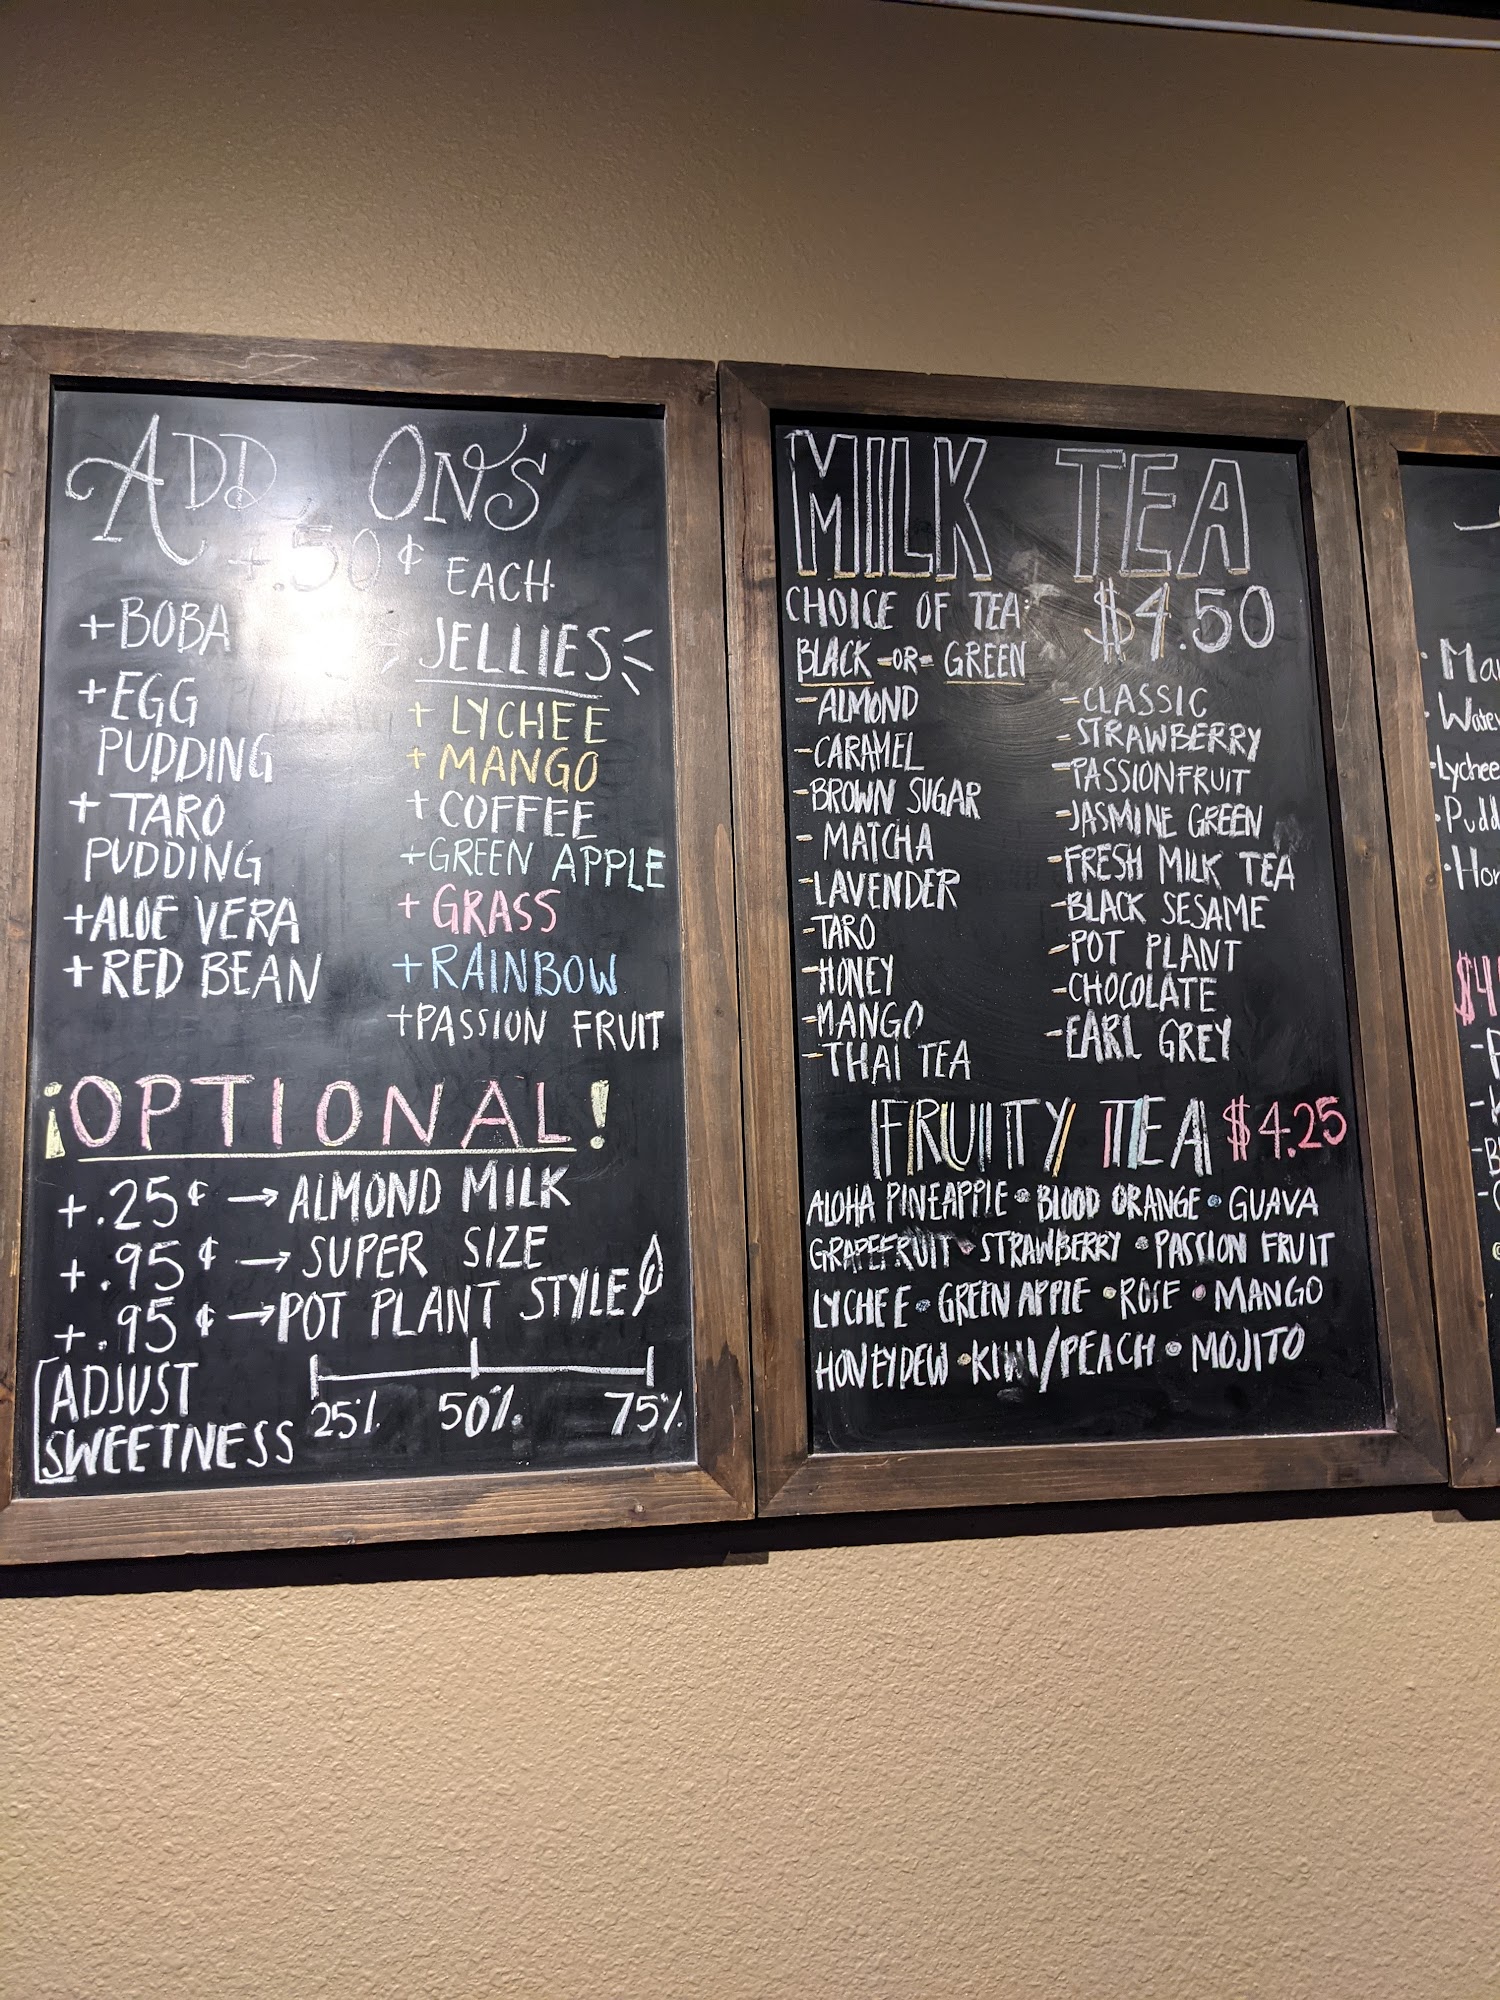 ADD ONS
+.50¢ EACH
+BOBA
+EGG
PUDDING
+TARO
PUDDING
+ALOE VERA
+RED BEAN
JELLIES
+LYCHEE
+MANGO
+COFFEE
+GREEN APPLE
+GRASS
+RAINBOW
+PASSION FRUIT
¡OPTIONAL!
+.25¢→ALMOND MILK
+.95¢→SUPER SIZE
+.95¢→POT PLANT STYLE
ADJUST
SWEETNESS
25% 50% 75%
MILK TEA
CHOICE OF TEA: $4.50
BLACK -OR- GREEN
-ALMOND
-CARAMEL
-BROWN SUGAR
-MATCHA
-LAVENDER
-TARO
-HONEY
-MANGO
-THAI TEA
-CLASSIC
-STRAWBERRY
-PASSIONFRUIT
-JASMINE GREEN
-FRESH MILK TEA
-BLACK SESAME
-POT PLANT
-CHOCOLATE
-EARL GREY
FRUITY TEA $4.25
ALOHA PINEAPPLE • BLOOD ORANGE • GUAVA
GRAPEFRUIT • STRAWBERRY • PASSION FRUIT
LYCHEE • GREEN APPLE • ROSE • MANGO
HONEYDEW • KIWI/PEACH • MOJITO
•Lychee